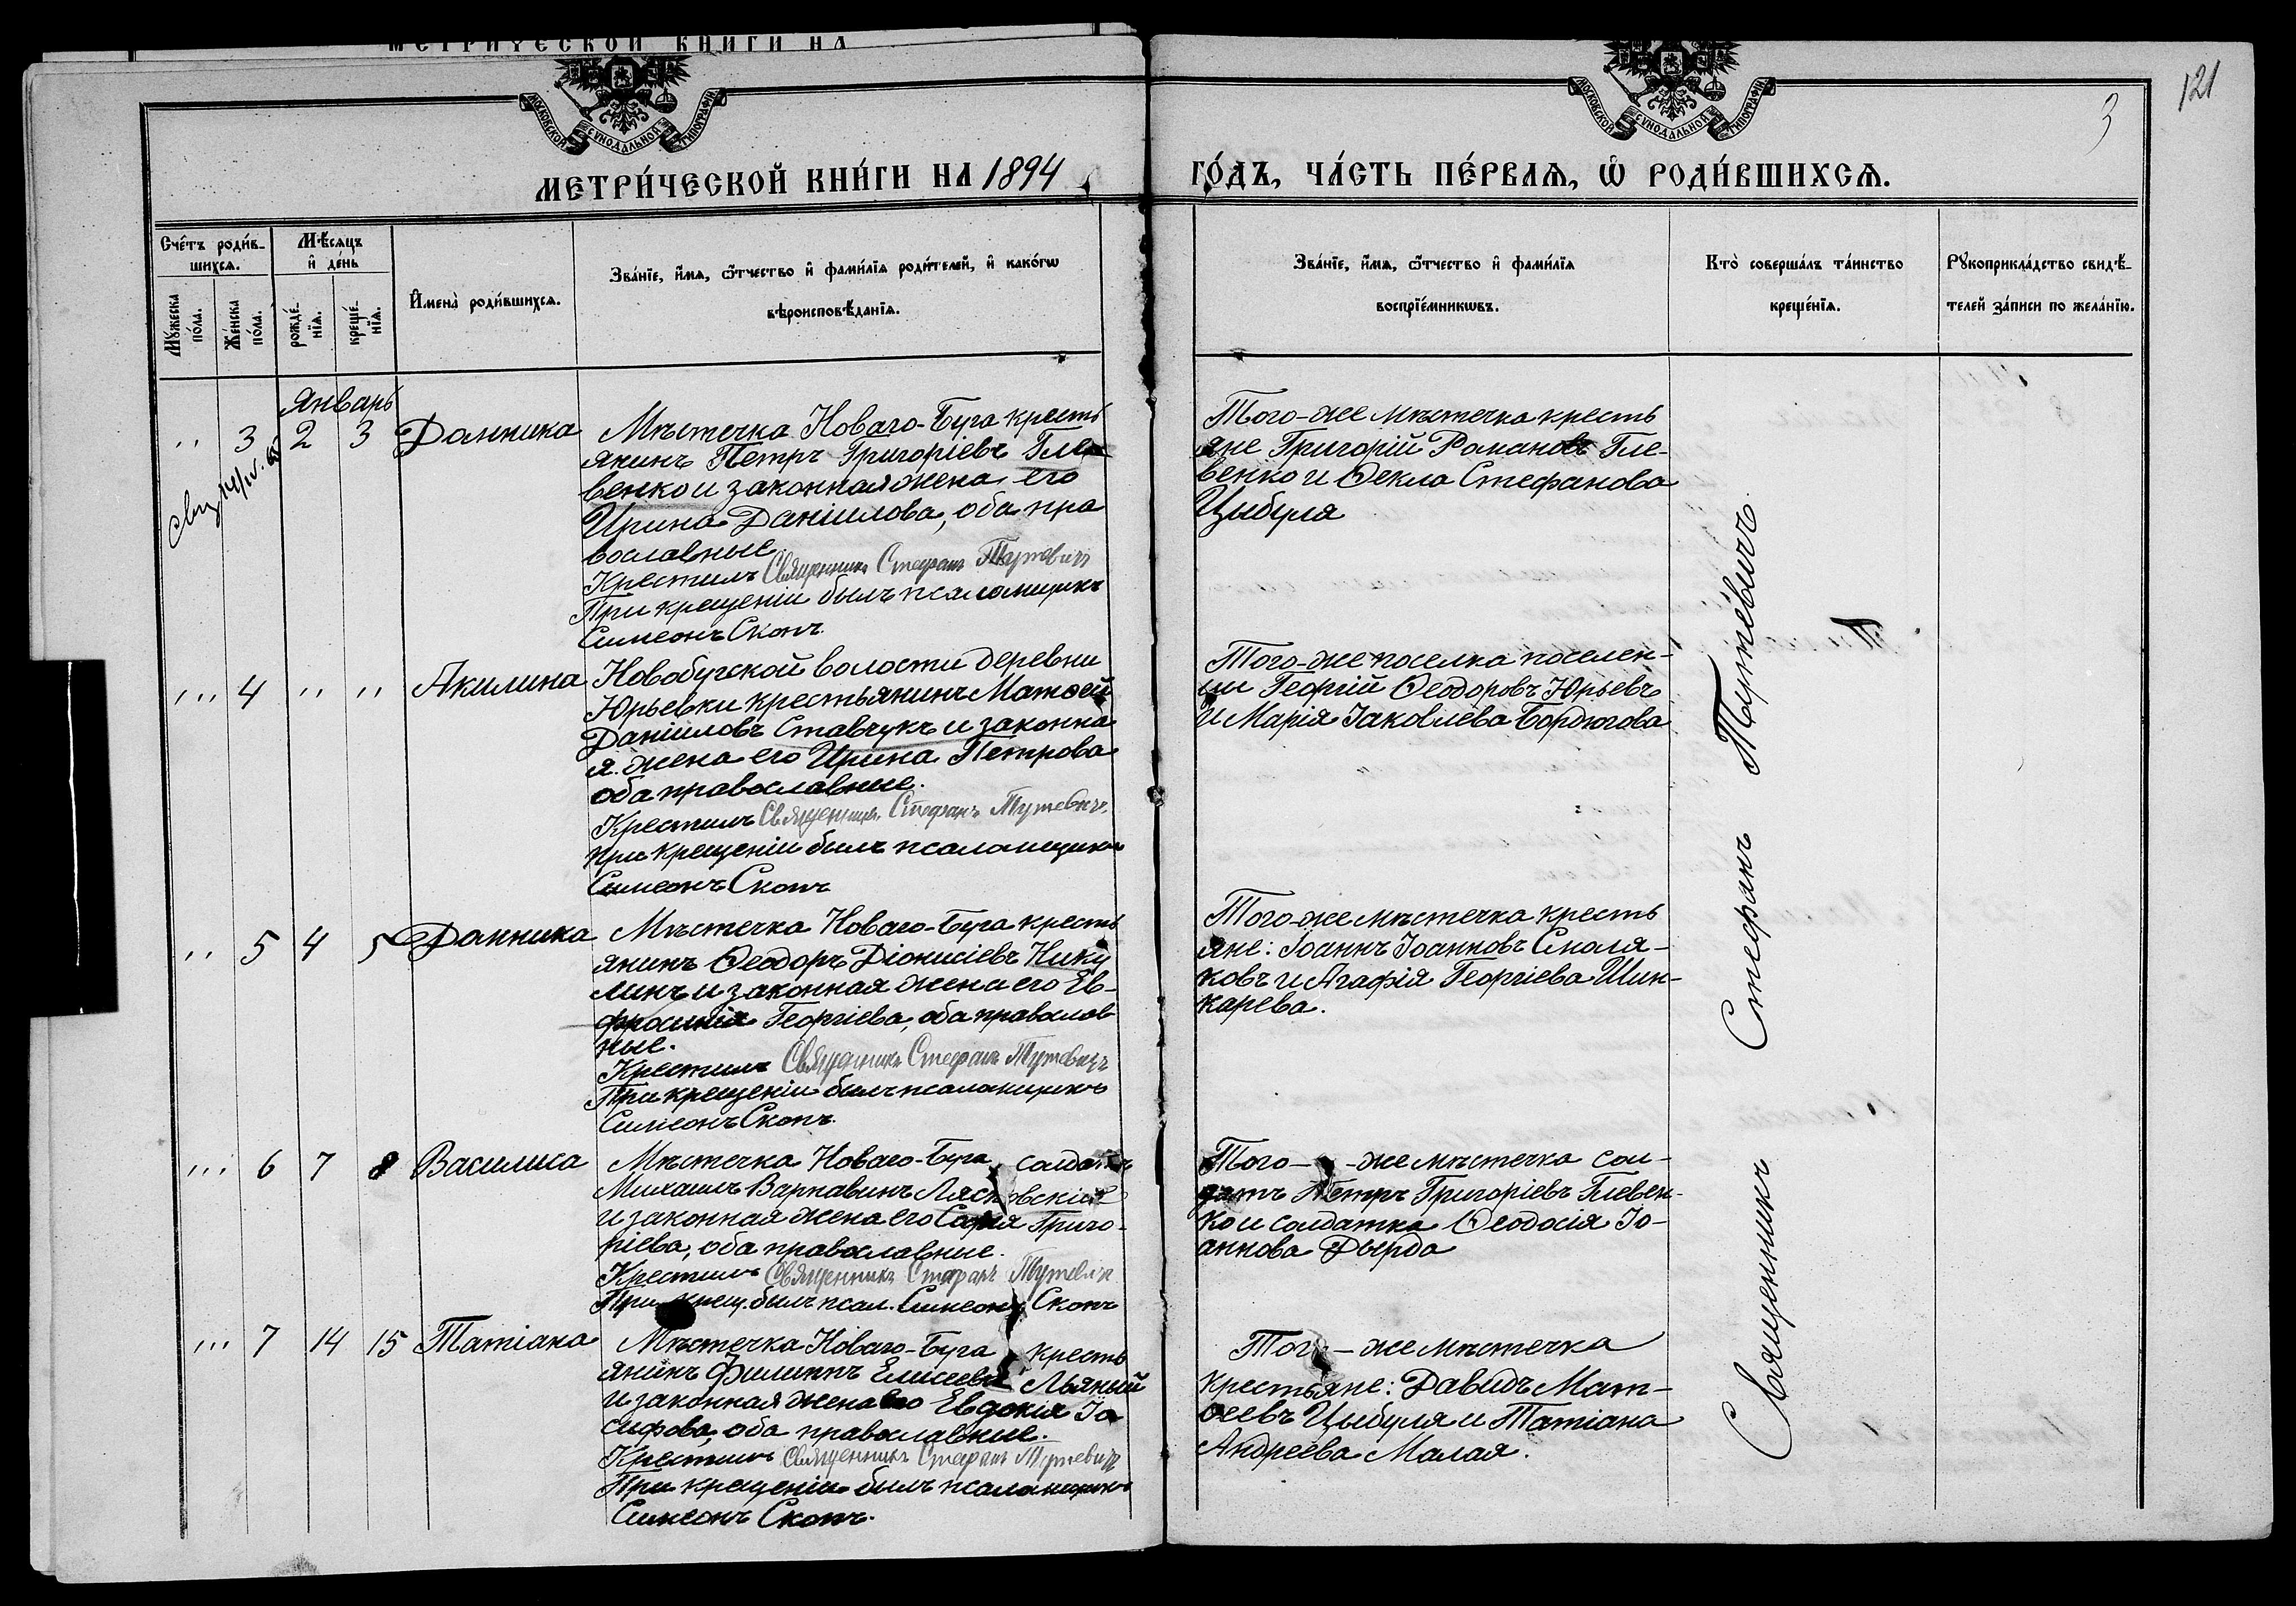 МЕТРИЧЕСКОЙ КНИГИ НА
МОСКОВСКОЙ СѴНОДАЛЬНОЙ ТИПОГРАФІИ
МОСКОВСКОЙ СѴНОДАЛЬНОЙ ТИПОГРАФІИ
3
121
МЕТРИ́ЧЕСКОЙ КНИ́ГИ НА 1894
ГО́ДЪ, ЧА́СТЬ ПЕ́РВАѦ, Ѡ҆ РОДИ́ВШИХСѦ.
Сче́тъ роди́в-
шихсѧ.
Мѣ́сѧцъ
и҆ де́нь
Мꙋ́жеска
по́ла.
Же́нска
по́ла.
рожде́-
нїѧ.
креще́-
нїѧ.
И҆мена̀ роди́вшихсѧ.
Зва́нїе, и҆́мѧ, ѻ҆́тчество и҆ фами́лїѧ роди́телей, и҆ како́гѡ
вѣроисповѣ́данїѧ.
Зва́нїе, и҆́мѧ, ѻ҆́тчество и҆ фами́лїѧ
воспрїе́мникѡвъ.
Кто̀ соверша́лъ та́инство
креще́нїѧ.
Рꙋкоприкла́дство свидѣ́-
телей за́писи по жела́нїю.
Январь
" 3 2 3 Домника
Мѣстечка Новаго-Буга кресть
янинъ Петръ Григоріевъ Гле
венко и законная жена его
Ирина Даніилова, оба пра
вославные
Крестилъ Священникъ Стефанъ Тутевичъ
При крещеніи былъ псаломщикъ
Симеонъ Скопъ.
Того-же мѣстечка кресть
яне Григорій Романовъ Гле-
венко и Ѳекла Стефанова
Цыбуля
"' 4 " " Акилина
Новобугской волости деревни
Юрьевки крестьянинъ Матѳей
Даніиловъ Ставчукъ и законна
я жена его Ирина Петрова
оба православные.
Крестилъ Священникъ Стефанъ Тутевичъ
При крещеніи былъ псаломщикъ
Симеонъ Скопъ
Того-же поселка поселен-
цы Георгій Ѳеодоровъ Юрьевъ
и Марія Іаковлева Бордюгова
" 5 4 5 Домника
Мѣстечка Новаго-Буга кресть
янинъ Ѳеодоръ Діонисіевъ Нику
линъ и законная жена его Ев-
фросинія Георгіева, оба православ
ные.
Крестилъ Священникъ Стефанъ Тутевичъ
При крещеніи былъ псаломщикъ
Симеонъ Скопъ.
Того-же мѣстечка кресть
яне: Іоаннъ Іоанновъ Смоля-
ковъ и Агафія Георгіева Шин-
карева.
"' 6 7 8 Василиса
Мѣстечка Новаго-Буга солдатъ
Михаилъ Варнавинъ Лясковскій
и законная жена его Софія Григо-
ріева, оба православные.
Крестилъ Священникъ Стефанъ Тутевичъ
При крещ. былъ псал. Симеонъ Скопъ
Того-же мѣстечка сол-
датъ Петръ Григоріевъ Глевен-
ко и солдатка Ѳеодосія Іо-
аннова Дырда
"' 7 14 15 Татіана
Мѣстечка Новаго-Буга кресть
янинъ Филиппъ Елисеевъ Льяный
и законная жена его Евдокія Іо
сифова, оба православные.
Крестилъ Священникъ Стефанъ Тутевичъ
При крещеніи былъ псаломщикъ
Симеонъ Скопъ.
Того-же мѣстечка
крестьяне: Давидъ Мат-
ѳеевъ Цыбуля и Татіана
Андреева Малая.
Священникъ Стефанъ Тутевичъ